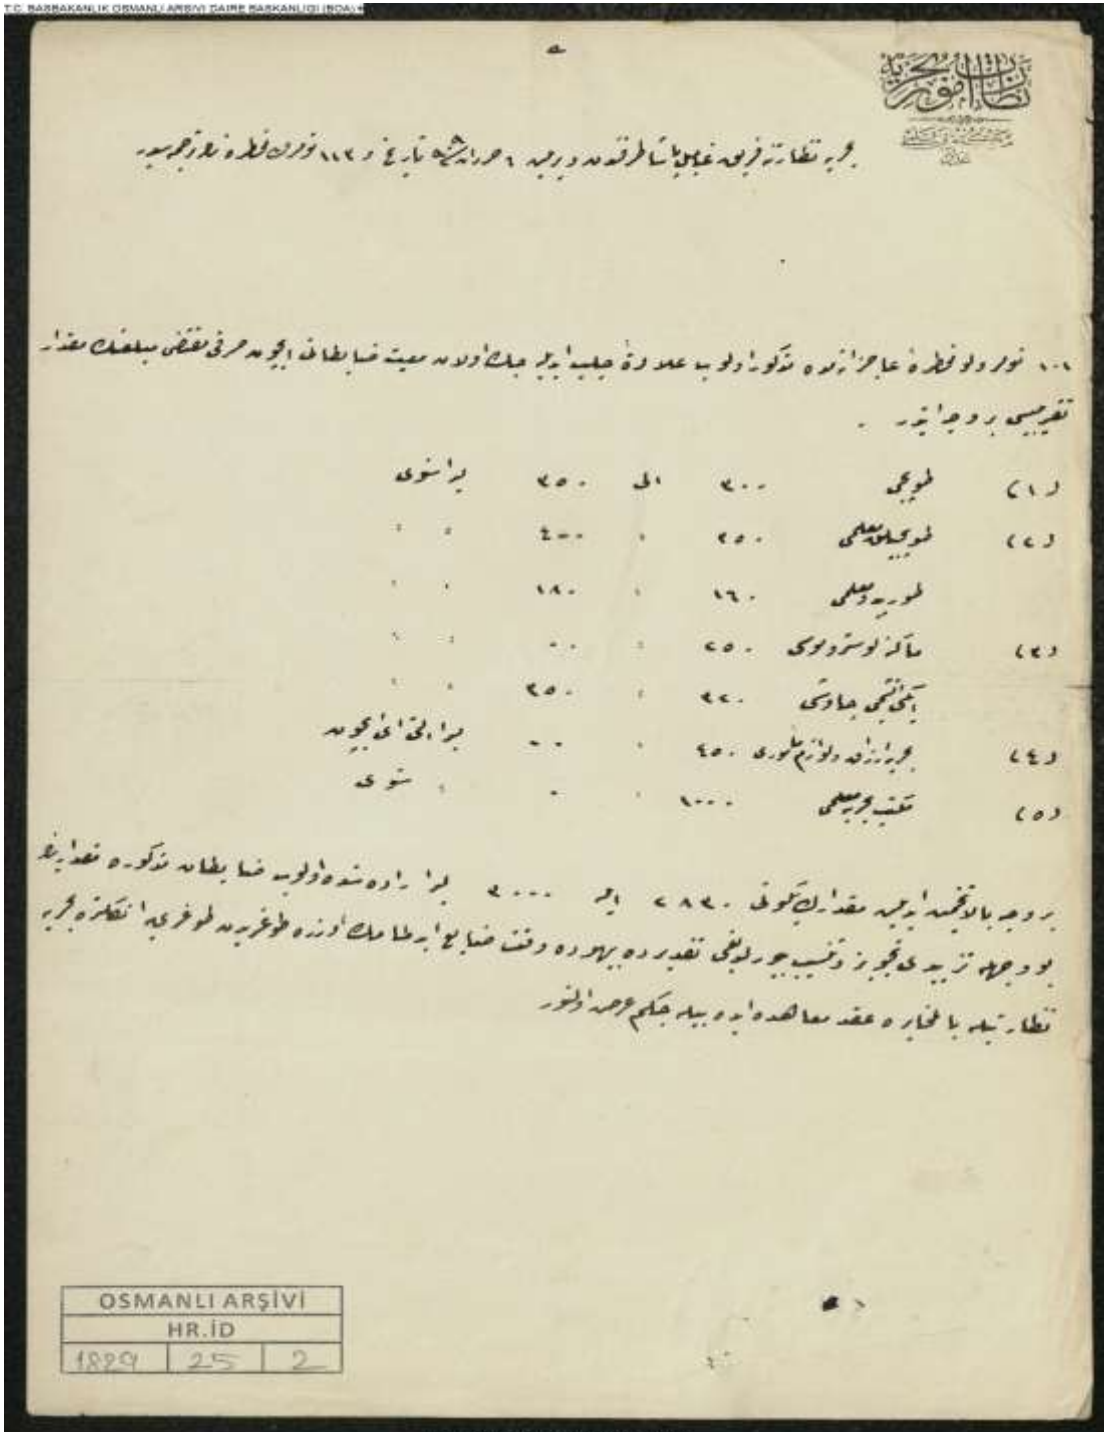 T.C. BAŞBAKANLIK OSMANLI ARŞİVİ DAİRE BAŞKANLIĞI (BOA)
نظارت امور بحریه
بحریه نظارتنه فریق پاشا طرفندن ویریلن ٦ حزیران تاریخ و ١١٣ نومرولی مخطره نك ترجمه سیدر
١٠١ نومرولو مخطرۀ عاجزانه مده مذکور اولوب علاوةً جلب ایدیله جك اولان معیت ضابطانی ایچون صرفی مقتضی مبلغك مقدار
تقریبیسی بر وجه آتیدر
(١) طوپجی ٣٠٠ الی ٣٥٠ لیرا سنوی
(٢) طوپجیلق معلمی ٢٥٠ " ٤٠٠ " "
طورپیدو معلمی ١٦٠ " ١٨٠ " "
(٣) ماکنه لوسترومو ٢٥٠ " ٠٠ " "
چاوش ٣٢٠ " ٣٥٠ " "
(٤) بحریه ارزاق ولوازم مأموری ٤٥٠ " ٠٠ لیرا التی آی ایچون
(٥) مکتب بحریه معلمی ١٠٠٠ " ٠ " سنوی
بر وجه بالا تخمین ایدیلن مقدارك یکونی ٢٨٣٠ ایله ٣٠٠٠ لیرا راده سنده اولوب ضابطان مذکوره مقدارینك
بو وجهله تزییدی تجویز وتنسیب بیوریلدیغی تقدیرده بیهوده وقت ضایع ایتمامك اوزره طوغریدن طوغری یه انکلتره بحریه
نظارتیله بالمخابره عقد معاهده ایده بیله جکم عرض اولنور
OSMANLI ARŞİVİ
HR.İD
1829 25 2